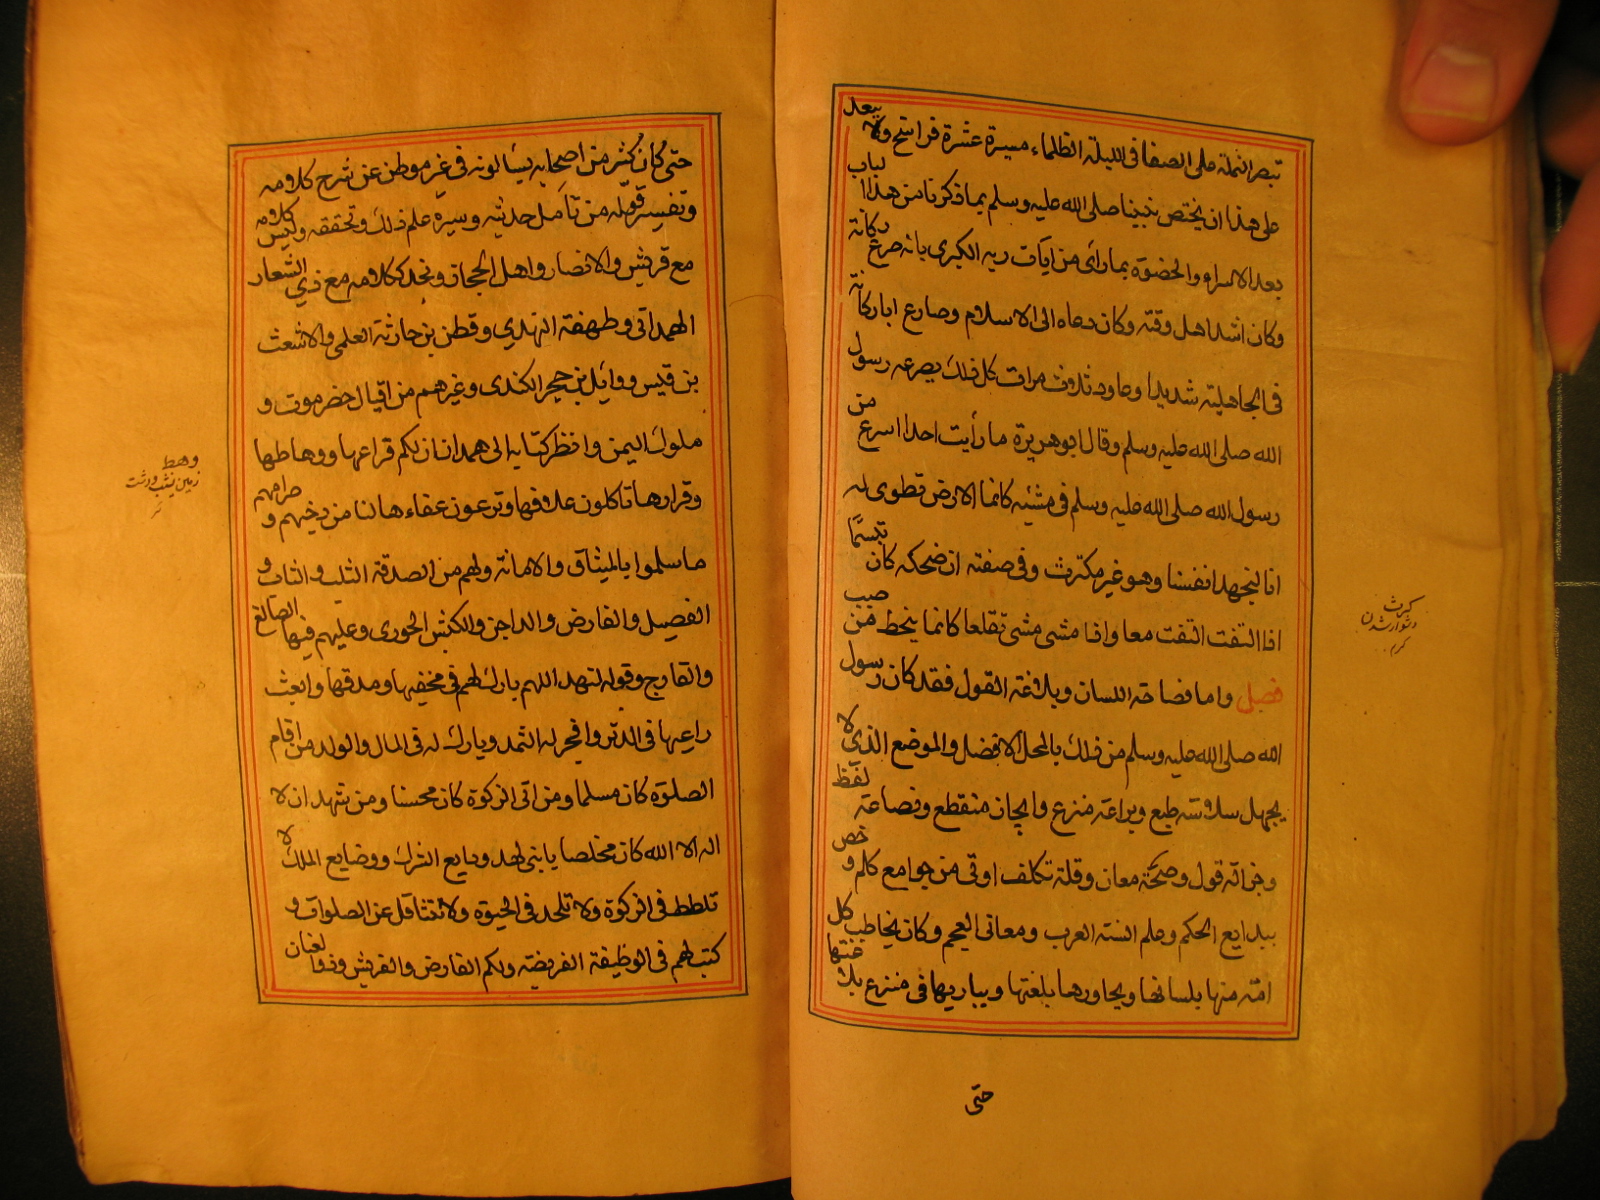 تبصر النملة على الصفا في الليلة الظلماء مسيرة عشرة فراسخ ولا يبعد
على هذا ان يختص نبينا صلى الله عليه وسلم بما ذكرناه من هذا الباب
بعد الاسراء والحضوة بما رأى من آيات ربه الكبرى بانه صرع ركانة
وكان اشد اهل وقته وكان دعاه الى الاسلام وصارع ابا ركانة
في الجاهلية شديدا وعاوده ثلاث مرات كل ذلك يصرعه رسول
الله صلى الله عليه وسلم وقال ابو هريرة ما رأيت احدا اسرع من
رسول الله صلى الله عليه وسلم في مشيه كانما الارض تطوى له
انا لنجهد انفسنا وهو غير مكترث وفي صفته ان ضحكه كان تبسما
اذا التفت التفت معا واذا مشى مشى تقلعا كانما ينحط من صبب
فصل واما فصاحة اللسان وبلاغة القول فقد كان رسول
الله صلى الله عليه وسلم من ذلك بالمحل الافضل والموضع الذي لا
يجهل سلاسة طبع وبراعة منزع وايجاز منقطع وفصاعة لفظ
وجزالة قول وصحة معان وقلة تكلف اوتي من جوامع كلم و خص
ببدايع الحكم وعلم السنة العرب ومعاني العجم وكان يخاطب كل
امة منها بلسانها ويحاورها بلغتها ويباريها في منزع بلاغتها
حتى
كرث
دشوار شدن
كرم
حتى كان كثير من اصحابه يسألونه في غير موطن عن شرح كلامه
وتفسير قوله من تأمل حديثه وسيره علم ذلك وتحققه وليس كلامه
مع قريش والانصار واهل الحجاز ونجد ككلامه مع ذي الشعار
الهمداني وطهفة النهدي وقطن بن حارثة العلمي والاشعث
بن قيس ووايل بن حجر الكندي وغيرهم من اقيال حضرموت و
ملوك اليمن وانظر كتابه الى همدان ان لكم فراعها ووهاطها
وقرارها تاكلون علافها وترعون عفاءها لنا من دفئهم و صرامهم
ما سلموا بالميثاق والامانة ولهم من الصدقة الثلب والناب و
الفصيل والفارض والداجن والكبش الحوري وعليهم فيها الصالغ
والقارح وقوله لنهد اللهم بارك لهم في محضها ومذقها وابعث
راعيها في الدثر وافجر له الثمد وبارك له في المال والولد من اقام
الصلوة كان مسلما ومن اتى الزكوة كان محسنا ومن شهد ان لا
اله الا الله كان مخلصا يا بني نهد ودايع الشرك ووضايع الملك لا
تلطط في الزكوة ولا تلحد في الحيوة ولا تتثاقل عن الصلوات و
كتب لهم في الوظيفة الفريضة ولكم الفارض والفريش وذو العنان
وهط
زمين نشب ودشت